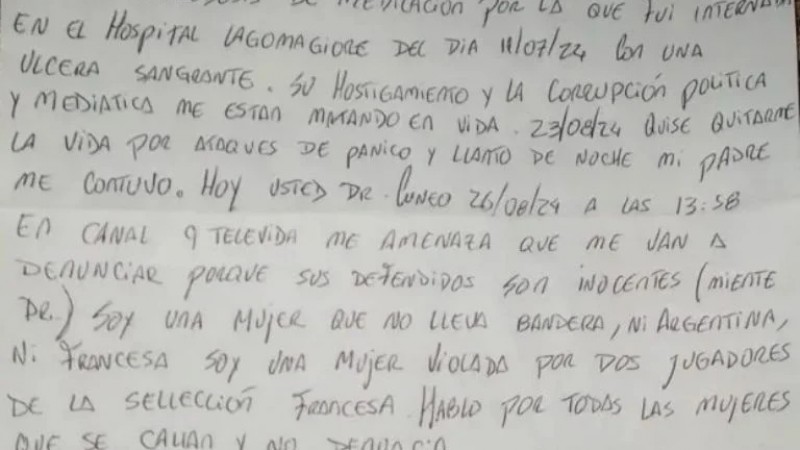 DE MEDICACIÓN POR LA QUE FUI INTERNADA
EN EL HOSPITAL LAGOMAGIORE DEL DIA 11/07/24 CON UNA
ULCERA SANGRANTE. SU HOSTIGAMIENTO Y LA CORRUPCIÓN POLITICA
Y MEDIATICA ME ESTAN MATANDO EN VIDA. 23/08/24 QUISE QUITARME
LA VIDA POR ATAQUES DE PANICO Y LLANTO DE NOCHE MI PADRE
ME CONTUVO. HOY USTED DR. CUNEO 26/08/24 A LAS 13:58
EN CANAL 9 TELEVIDA ME AMENAZA QUE ME VAN A
DENUNCIAR PORQUE SUS DEFENDIDOS SON INOCENTES (MIENTE
DR.) SOY UNA MUJER QUE NO LLEVA BANDERA, NI ARGENTINA,
NI FRANCESA SOY UNA MUJER VIOLADA POR DOS JUGADORES
DE LA SELLECCIÓN FRANCESA. HABLO POR TODAS LAS MUJERES
QUE SE CALLAN Y NO